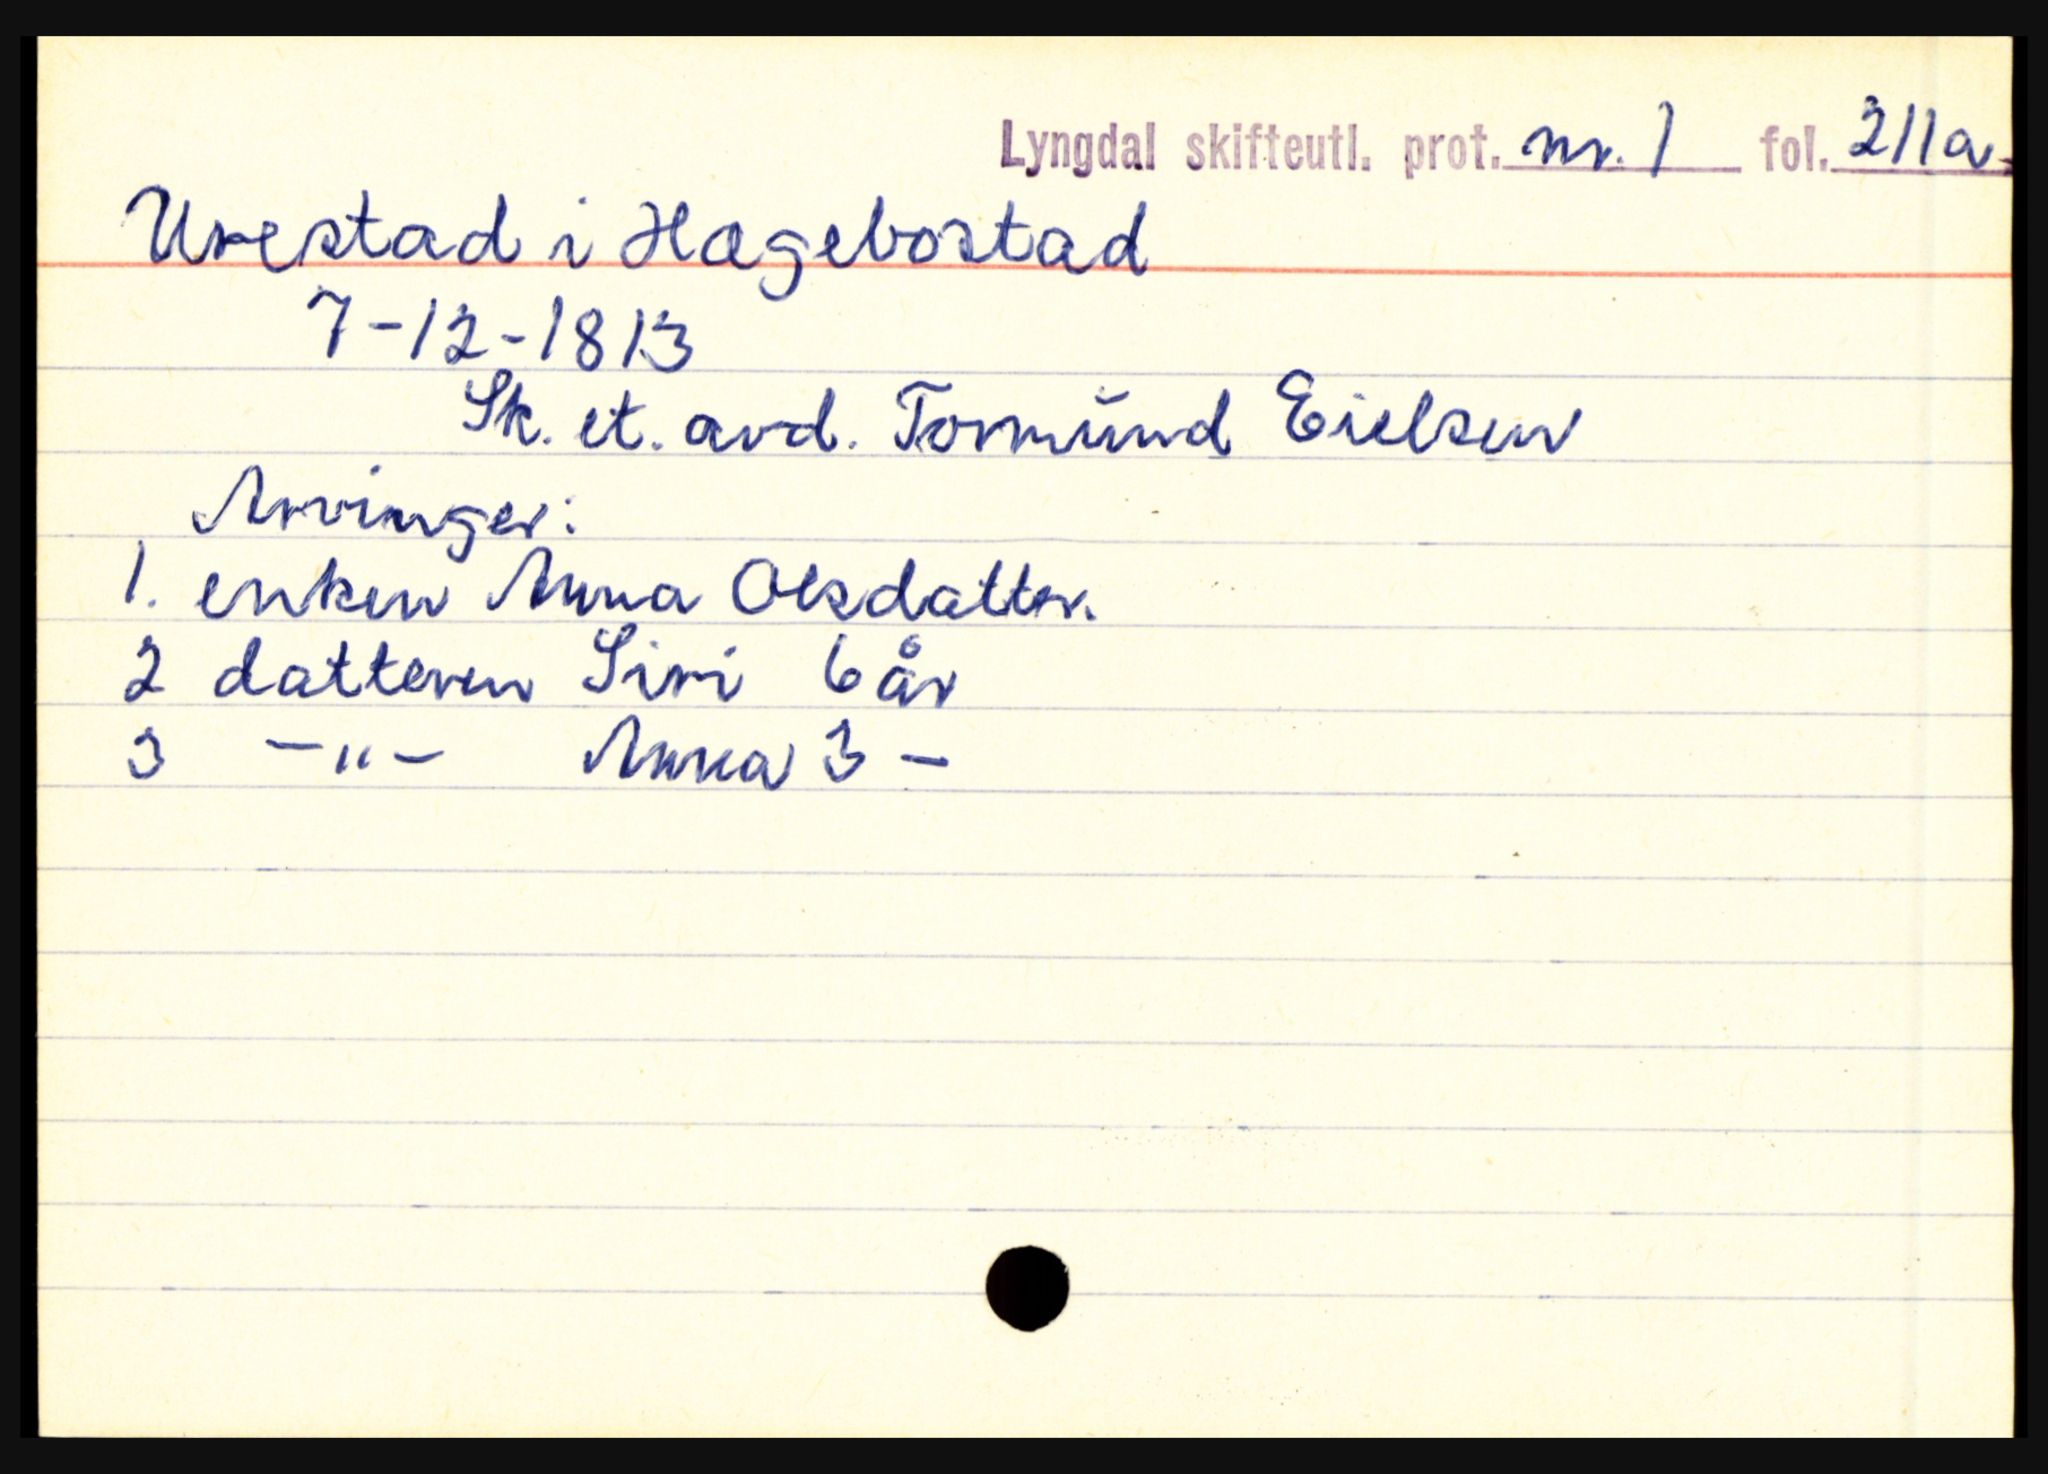 Lyngdal skifteutl. prot. nr. 1 fol. 211a.
Urestad i Hægebostad
7-12-1813
Sk. et. avd. Tormund Eielsen
Arvinger:
1. enken Anna Olsdatter.
2 datteren Siri 6 år
3 -"- Anna 3 -